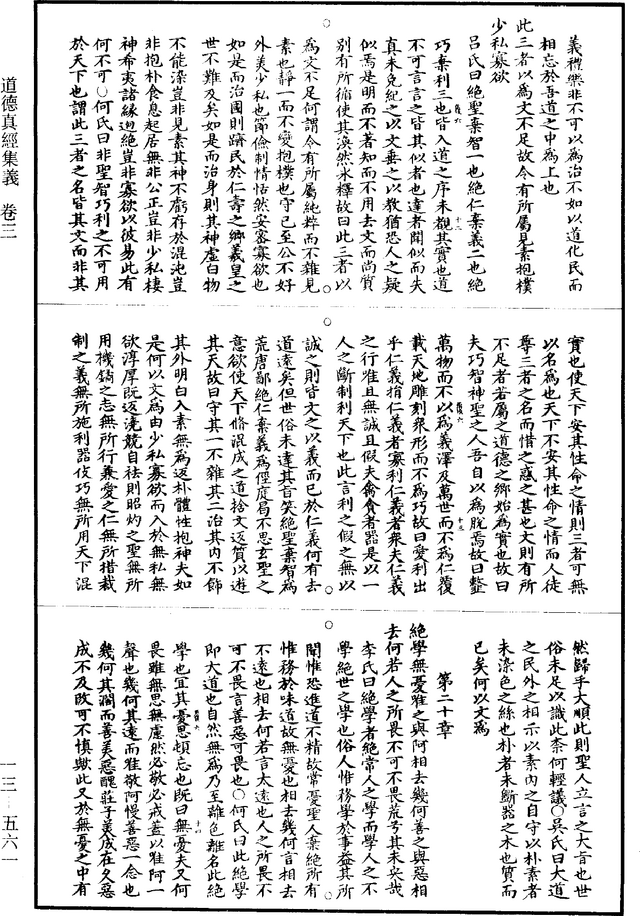 義禮樂非不可以為治不如以道化民而
相忘於吾道之中為上也
此三者以為文不足故令有所屬見素抱樸
少私寡欲
呂氏曰絕聖棄智一也絕仁棄義二也絕
巧棄利三也皆入道之序未觀其實也道
不可言言之皆其似者也達者聞似而失
真未免紀之以文垂之以教猶恐人之疑
似焉是明而不著知而不用去文而尚質
別有所循使其渙然氷釋故曰此三者以
為文不足何謂令有所屬純粹而不雜見
素也靜一而不變抱樸也守已至公不好
外美少私也節儉制情怗然安審寡欲也
如是而治國則躋民於仁壽之鄉羲望之
世不難及矣如是而治身則其神虛白物
不能染豈非見素其神不虧存於混沌豈
非抱朴食息起居無非公正豈非少私棲
神希夷諸緣迥絕豈非寡欲以彼易此有
何不可○何氏曰非聖智巧利之不可用
於天下也謂此三者之名皆其文而非其
實也使天下安其性命之情則三者可無
以名為也天下不安其性命之情而人徒
尊三者之名而惜之惑之甚也文則有所
不足者若屬之道德之鄉始為實也故曰
夫巧智神聖之人吾自以為脫焉故曰䪠
萬物而不以為義澤及萬世而不為仁覆
載天地雕刻衆形而不為巧故曰愛利出
乎仁義捐仁義者寡利仁義者衆夫仁義
之行唯且無誠且假夫禽貪者器是以一
人之斷制利天下也此言利之假之無以
誠之則皆文之以義而已於仁義何有去
道遠矣但世俗未達其旨笑絕聖棄智為
荒唐鄙絕仁棄義為俓庭局不思玄聖之
意欲使天下脩混成之道捨文返質以遊
其天故曰守其一不雜其二治其內不飾
其外明白入素無為返朴體性抱神夫如
是何以文為由少私寡欲而入於無私無
欲淳厚既返澆競自祛則昭灼之聖無所
用機鑄之志無所行兼愛之仁無所措裁
制之義無所施利器伎巧無所用天下混
然歸乎大順此則聖人立言之大旨也世
俗未足以識此柰何輕議○吳氏曰大道
之民外之相示以素內之自守以朴素者
未染色之絲也朴者未斷器之木也質而
已矣何以文為
第二十章
絕學無憂唯之與阿相去幾何善之與惡相
去何若人之所畏不可不畏荒兮其未央哉
李氏曰絕學者絕常人之學而學人之不
學絕世之學也俗人惟務學於事益其所
聞惟恐進道不精故常憂聖人棄絕所有
惟務於味道故無憂也相去幾何言相去
不遠也相去何若言太遠也人之所畏不
可不畏言善惡可畏也○何氏曰此絕學
即大道也自然無為乃至離色離名此絕
學也宜其憂思頓忘也既曰無憂夫又何
畏雖無思無慮然必敬必戒蓋以唯阿一
聲也幾何其遠而唯敬阿慢善惡一念也
幾何其濶而善美惡醜莊子美成在久惡
成不及改可不慎歟此又於無憂之中有
道德真經集義 卷三
一三 五六一